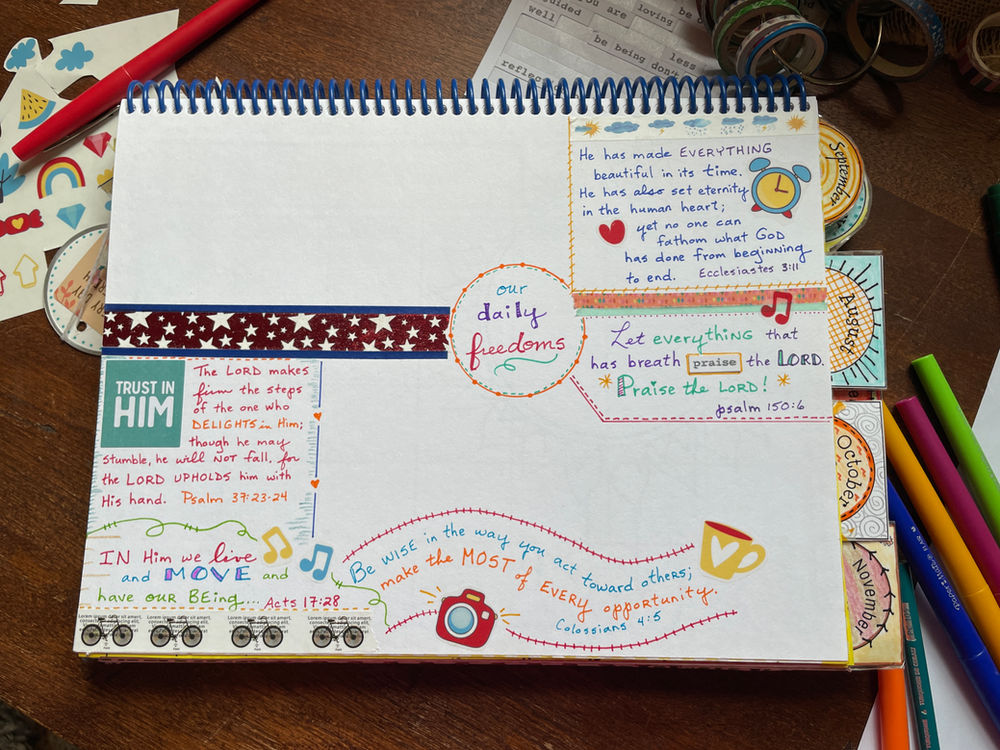 you are loving be
guided
well
be being don't less
reflec
He has made EVERYTHING
beautiful in its time.
He has also set eternity
in the human heart;
yet no one can
fathom what GOD
has done from beginning
to end. Ecclesiastes 3:11
our
daily
freedoms
Let everything that
has breath praise the LORD.
Praise the LORD!
psalm 150:6
TRUST IN
HIM
The LORD makes
firm the steps
of the one who
DELIGHTS in Him;
though he may
stumble, he will NOT fall, for
the LORD UPHOLDS him with
His hand. Psalm 37:23-24
IN Him we live
and MOVE and
have our BEing.... Acts 17:28
Be WISE in the way you act toward others;
make the MOST of EVERY opportunity.
Colossians 4:5
Lorem ipsum dolor sit amet,
Lorem ipsum dolor sit amet,
Lorem ipsum dolor sit amet,
Lorem ipsum dolor sit amet,
September
August
October
November